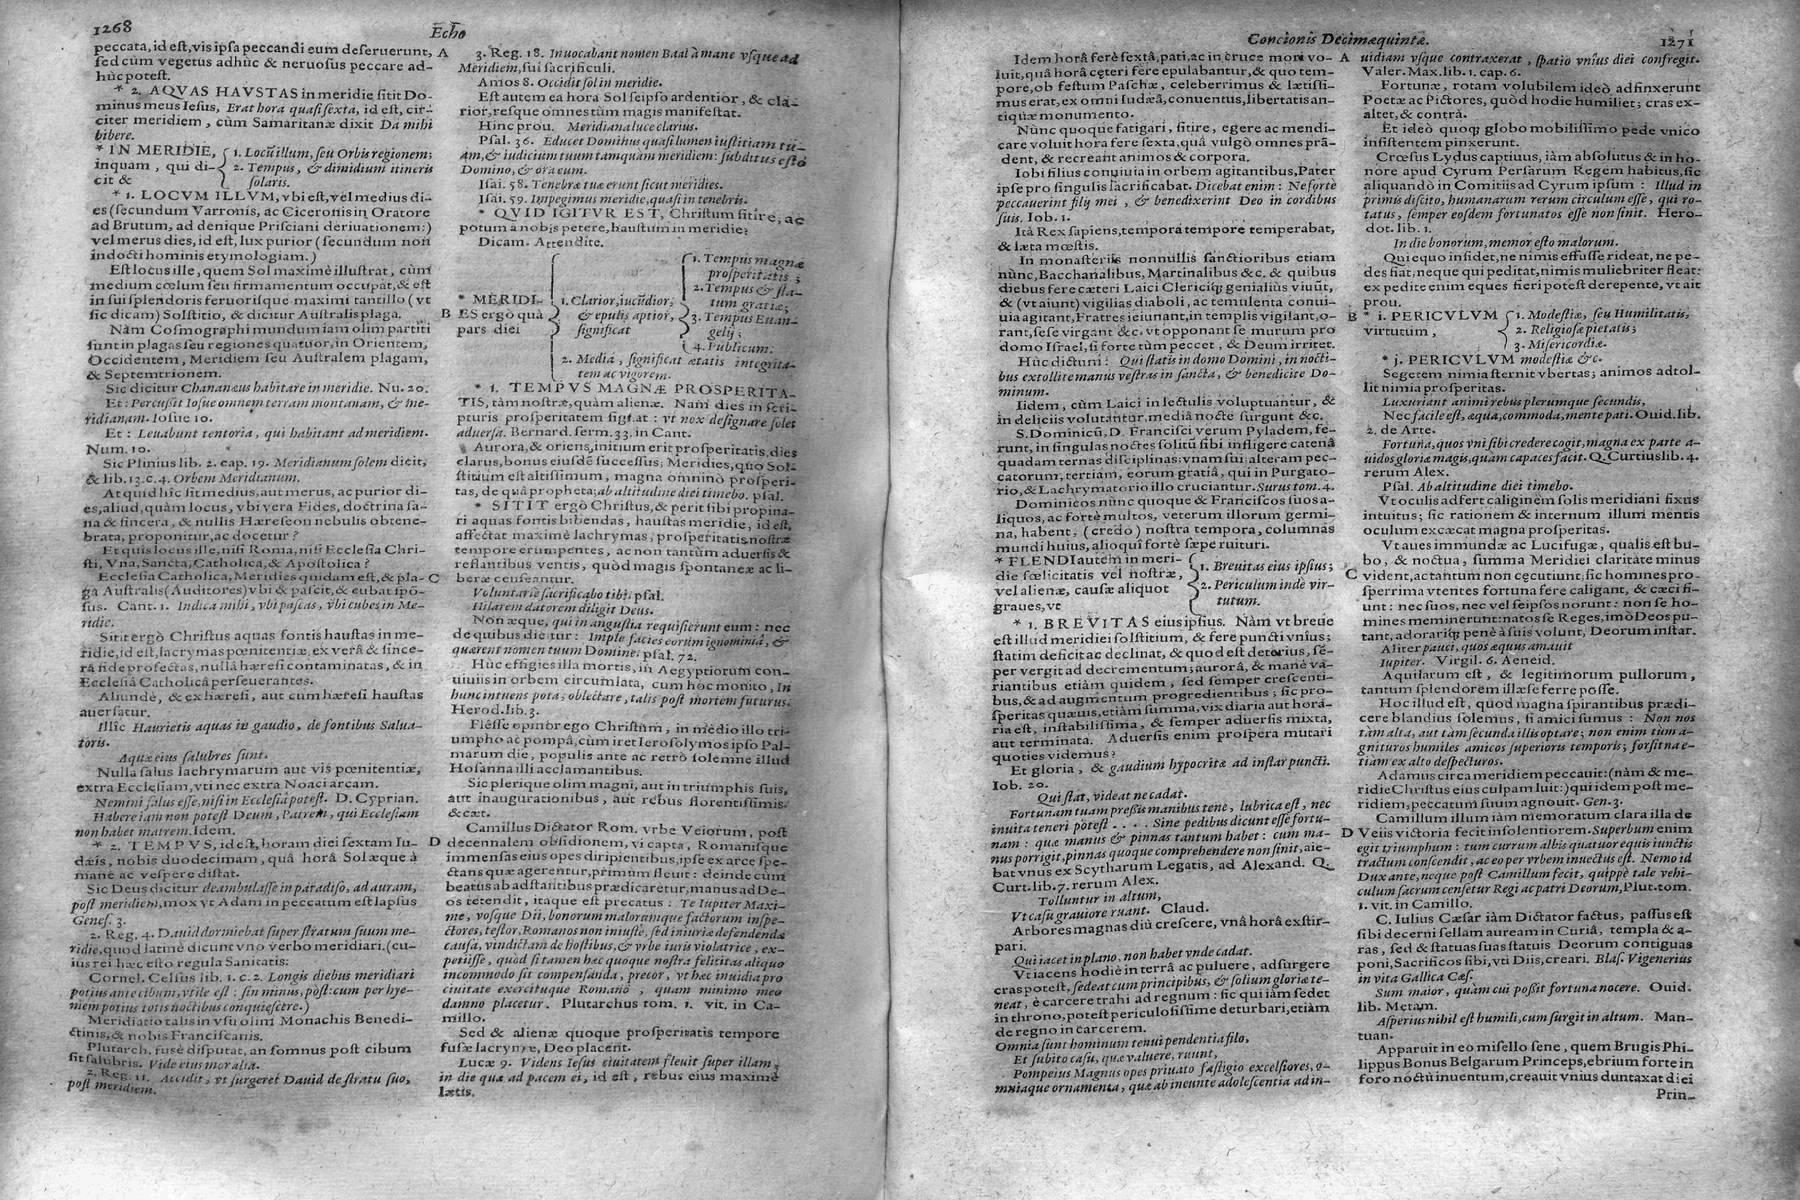 1268
Echo
peccata, id est, vis ipsa peccandi eum deseruerunt,
sed cùm vegetus adhùc & neruosus peccare ad-
hùc potest.
* 2. AQVAS HAVSTAS in meridie sitit Do-
minus meus Iesus, Erat hora quasi sexta, id est, cir-
citer meridiem, cùm Samaritanæ dixit Da mihi
bibere.
* IN MERIDIE, { 1. Locũ illum, seu Orbis regionem;
inquam, qui di- 2. Tempus, & dimidium itineris
cit & solaris.
* 1. LOCVM ILLVM, vbi est, vel medius di-
es (secundum Varronis, ac Ciceronis in Oratore
ad Brutum, ad denique Prisciani deriuationem:)
vel merus dies, id est, lux purior (secundum non
indocti hominis etymologiam.)
Est locus ille, quem Sol maximè illustrat, cùm
medium cœlum seu firmamentum occupat, & est
in sui splendoris feruorisque maximi tantillo (vt
sic dicam) Solstitio, & dicitur Australis plaga.
Nàm Cosmographi mundum iam olim partiti
sunt in plagas seu regiones quatuor, in Orientem,
Occidentem, Meridiem seu Australem plagam,
& Septemtrionem.
Sic dicitur Chananæus habitare in meridie. Nu. 20.
Et: Percußit Iosue omnem terram montanam, & me-
ridianam. Iosue 10.
Et: Leuabunt tentoria, qui habitant ad meridiem.
Num. 10.
Sic Plinius lib. 2. cap. 19. Meridianum solem dicit,
& lib. 13. c. 4. Orbem Meridianum.
At quid hìc sit medius, aut merus, ac purior di-
es, aliud, quàm locus, vbi vera Fides, doctrina sa-
na & sincera, & nullis Hæreseon nebulis obtene-
brata, proponitur, ac docetur?
Et quis locus ille, nisi Roma, nisi Ecclesia Chri-
sti, Vna, Sancta, Catholica, & Apostolica?
Ecclesia Catholica, Meridies quidam est, & pla-
ga Australis (Auditores) vbi & pascit, & cubat spõ-
sus. Cant. 1. Indica mihi, vbi pascas, vbi cubes in Me-
ridie.
Sitit ergò Christus aquas fontis haustas in me-
ridie, id est, lacrymas pœnitentiæ, ex verâ & since-
râ fide profectas, nullâ hæresi contaminatas, & in
Ecclesiâ Catholicâ perseuerantes.
Aliundè, & ex hæresi, aut cum hæresi haustas
auersatur.
Illìc Haurietis aquas in gaudio, de fontibus Salua-
toris.
Aquæ eius salubres sunt.
Nulla salus lachrymarum aut vis pœnitentiæ,
extra Ecclesiam, vti nec extra Noaci arcam.
Nemini salus esse, nisi in Ecclesiâ potest. D. Cyprian.
Habere iam non potest Deum, Patrem, qui Ecclesiam
non habet matrem. Idem.
* 2. TEMPVS, id est, horam diei sextam Iu-
dæis, nobis duodecimam, quâ horâ Sol æquè à
mane ac vespere distat.
Sic Deus dicitur deambulasse in paradiso, ad auram,
post meridiem, mox vt Adam in peccatum est lapsus
Genes. 3.
2. Reg. 4. Dauid dormiebat super stratum suum me-
ridie, quod latinè dicunt vno verbo meridiari. (cu-
ius rei hæc esto regula Sanitatis:
Cornel. Celsus lib. 1. c. 2. Longis diebus meridiari
potius ante cibum, vtile est: sin minus, pòst: cum per hye-
niem potius totis noctibus conquiescere.)
Meridiatio talis in vsu olim Monachis Benedi-
ctinis, & nobis Franciscanis.
Plutarch. fusè disputat, an somnus post cibum
sit salubris. Vide eius moralia.
2. Reg. 11. Accidit, vt surgeret Dauid de stratu suo,
post meridiem.
A
B
C
D
3. Reg. 18. Inuocabant nomen Baal à mane vsque ad
Meridiem, sui sacrificuli.
Amos 8. Occidit sol in meridie.
Est autem ea hora Sol seipso ardentior, & cla-
rior, resque omnes tùm magis manifestat.
Hinc prou. Meridiana luce clarius.
Psal. 36. Educet Dominus quasi lumen iustitiam tu-
am, & iudicium tuum tamquam meridiem: subditus esto
Domino, & ora eum.
Isai. 58. Tenebræ tuæ erunt sicut meridies.
Isai. 59. Impegimus meridie, quasi in tenebris.
* QVID IGITVR EST, Christum sitire, ac
potum à nobis petere, haustum in meridie?
Dicam. Attendite.
* MERIDI-
ES ergò quà
pars diei
1. Clarior, iucũdior,
& epulis aptior,
significat
1. Tempus magnæ
prosperitatis;
2. Tempus & sta-
tum gratiæ;
3. Tempus Euan-
gelij;
4. Publicum.
2. Media, significat ætatis integrita-
tem ac vigorem.
* 1. TEMPVS MAGNÆ PROSPERITA-
TIS, tàm nostræ, quàm alienæ. Nam dies in scri-
pturis prosperitatem sigt.at: vt nox designare solet
aduersa. Bernard. serm. 33. in Cant.
Aurora, & oriens, initium erit prosperitatis, dies
clarus, bonus eiusdẽ successus; Meridies, quo Sol-
stitium est altissimum, magna omninò prosperi-
tas, de quâ propheta; ab altitudine diei timebo. psal.
* SITIT ergò Christus, & perit sibi propina-
ri aquas fontis bibendas, haustas meridie, id est,
affectat maximè lachrymas, prosperitatis nostræ
tempore erumpentes, ac non tantùm aduersis &
reflantibus ventis, quòd magis spontaneæ ac li-
beræ censeantur.
Voluntariè sacrificabo tibi: psal.
Hilarem datorem diligit Deus.
Non æque, qui in angustia requisierunt eum: nec
de quibus dicitur: Imple facies eorum ignominiâ, &
quærent nomen tuum Domine. psal. 72.
Hùc effigies illa mortis, in Aegyptiorum con-
uiuiis in orbem circumlata, cum hoc monito, In
hunc intuens pota; oblectare, talis post mortem futurus.
Herod. lib. 3.
Flêsse opinor ego Christũm, in medio illo tri-
umpho ac pompâ, cùm iret Ierosolymos ipso Pal-
marum die, populis ante ac retrò solemne illud
Hosanna illi acclamantibus.
Sic plerique olim magni, aut in triumphis suis,
aut inaugurationibus, aut rebus florentissimis.
& cæt.
Camillus Dictator Rom. vrbe Veiorum, post
decennalem obsidionem, vi capta, Romanisque
immensas eius opes diripientibus, ipse ex arce spe-
ctans quæ agerentur, primùm fleuit: deinde cùm
beatus ab adstantibus prædicaretur, manus ad De-
os tetendit, itaque est precatus: Te Iupiter Maxi-
me, vosque Dii, bonorum malorumque factorum inspe-
ctores, testor, Romanos non iniustè, sed iniuriæ defendendæ
causâ, vindictam de hostibus, & vrbe iuris violatrice, ex-
petiisse, quòd si tamen hæc quoque nostra felicitas aliquo
incommodo sit compensanda, precor, vt hæc inuidia pro
ciuitate exercituque Romanô, quam minimo meo
damno placetur. Plutarchus tom. 1. vit. in Ca-
millo.
Sed & alienæ quoque prosperitatis tempore
fusæ lacrymæ, Deo placent.
Lucæ 9. Videns Iesus ciuitatem fleuit super illam,
in die quæ ad pacem ei, id est, rebus eius maximè
lætis.
Concionis Decimæquintæ.
1271
Idem horâ ferè sextâ, pati, ac in cruce mori vo-
luit, quâ horâ cęteri fere epulabantur, & quo tem-
pore, ob festum Paschæ, celeberrimus & lætissi-
mus erat, ex omni Iudæâ, conuentus, libertatis an-
tiquæ monumento.
Nùnc quoque fatigari, sitire, egere ac mendi-
care voluit hora fere sexta, quâ vulgò omnes prã-
dent, & recreant animos & corpora.
Iobi filius conuiuia in orbem agitantibus, Pater
ipse pro singulis sacrificabat. Dicebat enim: Ne fortè
peccauerint filij mei, & benedixerint Deo in cordibus
suis. Iob. 1.
Ità Rex sapiens, tempora tempore temperabat,
& læta mœstis.
In monasteriis nonnullis sanctioribus etiam
nùnc, Bacchanalibus, Martinalibus &c. & quibus
diebus fere cæteri Laici Clericiq; genialius viuũt,
& (vt aiunt) vigilias diaboli, ac temulenta conui-
uia agitant, Fratres ieiunant, in templis vigilant, o-
rant, sese virgant &c. vt opponant se murum pro
domo Israel, si forte tùm peccet, & Deum irritet.
Hùc dictuni: Qui statis in domo Domini, in nocti-
bus extollite manus vestras in sancta, & benedicite Do-
minum.
Iidem, cùm Laici in lectulis voluptuantur, &
in deliciis volutantur, mediâ nocte surgunt &c.
S. Dominicũ, D. Francisci verum Pyladem, fe-
runt, in singulas noctes solitũ sibi infligere catenâ
quadam ternas disciplinas: vnam sui: alteram pec-
catorum; tertiam, eorum gratiâ, qui in Purgato-
rio, & Lachrymatorio illo cruciantur. Surus tom. 4.
Dominicos nùnc quoque & Franciscos suos a-
liquos, ac fortè multos, veterum illorum germi-
na, habent, (credo) nostra tempora, columnas
mundi huius, alioquì fortè sæpe ruituri.
* FLENDI autem in meri-
die fœlicitatis vel nostræ,
vel alienæ, causæ aliquot
graues, vt
1. Breuitas eius ipsius;
2. Periculum inde vir-
tutum.
* 1. BREVITAS eius ipsius. Nàm vt breue
est illud meridiei solstitium, & fere puncti vnius;
statim deficit ac declinat, & quod est deterius, sē-
per vergit ad decrementum; aurorâ, & mane va-
riantibus etiàm quidem, sed semper crescenti-
bus, & ad augmentum progredientibus; sic pro-
speritas quæuis, etiàm summa, vix diaria aut hora-
ria est, instabilissima, & semper aduersis mixta,
aut terminata. Aduersis enim prospera mutari
quoties videmus?
Et gloria, & gaudium hypocritæ ad instar puncti.
Iob. 20.
Qui stat, videat ne cadat.
Fortunam tuam preßis manibus tene, lubrica est, nec
inuita teneri potest . . . . Sine pedibus dicunt esse fortu-
nam: quæ manus & pinnas tantum habet: cum ma-
nus porrigit, pinnas quoque comprehendere non sinit, aie-
bat vnus ex Scytharum Legatis, ad Alexand. Q.
Curt. lib. 7. rerum Alex.
Tolluntur in altum,
Vt casu grauiore ruant. Claud.
Arbores magnas diù crescere, vnâ horâ exstir-
pari.
Qui iacet in plano, non habet vnde cadat.
Vt iacens hodiè in terrâ ac puluere, adsurgere
cras potest, sedeat cum principibus, & solium gloriæ te-
neat, è carcere trahi ad regnum: sic qui iàm sedet
in throno, potest periculosissime deturbari, etiàm
de regno in carcerem.
Omnia sunt hominum tenui pendentia filo,
Et subito casu, quæ valuere, ruunt,
Pompeius Magnus opes priuato fastigio excelsiores, o-
mniaque ornamenta, quæ ab ineunte adolescentia ad in-
A
B
C
D
uidiam vsque contraxerat, spatio vnius diei confregit.
Valer. Max. lib. 1. cap. 6.
Fortunæ, rotam volubilem ideò adfinxerunt
Poetæ ac Pictores, quòd hodie humiliet; cras ex-
altet, & contrà.
Et ideò quoq; globo mobilissimo pede vnico
insistentem pinxerunt.
Crœsus Lydus captiuus, iàm absolutus & in ho-
nore apud Cyrum Persarum Regem habitus, sic
aliquando in Comitiis ad Cyrum ipsum: Illud in
primis discito, humanarum rerum circulum esse, qui ro-
tatus, semper eosdem fortunatos esse non sinit. Hero-
dot. lib. 1.
In die bonorum, memor esto malorum.
Qui equo insidet, ne nimis effuse rideat, ne pe-
des fiat, neque qui peditat, nimis muliebriter fleat:
ex pedite enim eques fieri potest derepente, vt ait
prou.
* 1. PERICVLVM
virtutum,
1. Modestiæ, seu Humilitatis,
2. Religiosæ pietatis;
3. Misericordiæ.
* j. PERICVLVM modestiæ &c.
Segetem nimia sternit vbertas; animos adtol-
lit nimia prosperitas.
Luxuriant animi rebus plerumque secundis,
Nec facile est, æqua, commoda, mente pati. Ouid. lib.
2. de Arte.
Fortuna, quos vni sibi credere cogit, magna ex parte a-
uidos gloriæ magis, quam capaces facit. Q. Curtius lib. 4.
rerum Alex.
Psal. Ab altitudine diei timebo.
Vt oculis adfert caliginem solis meridiani fixus
intuitus; sic rationem & internum illum mentis
oculum excæcat magna prosperitas.
Vt aues immundæ ac Lucifugæ, qualis est bu-
bo, & noctua, summa Meridiei claritate minus
vident, ac tantum non cęcutiunt, sic homines pro-
sperrima vtentes fortuna fere caligant, & cæci fi-
unt: nec suos, nec vel seipsos norunt: non se ho-
mines meminerunt: natos se Reges, imò Deos pu-
tant, adorariq; penè à suis volunt, Deorum instar.
Aliter pauci, quos æquus amauit
Iupiter. Virgil. 6. Aeneid.
Aquilarum est, & legitimorum pullorum,
tantum splendorem illæse ferre posse.
Hoc illud est, quod magna spirantibus prædi-
cere blandius solemus, si amici sumus: Non nos
tàm alta, aut tam secunda illis optare; non enim tùm a-
gnituros humiles amicos superioris temporis; forsitna e-
tiam ex alto despecturos.
Adamus circa meridiem peccauit: (nàm & me-
ridie Christus eius culpam luit:) qui idem post me-
ridiem, peccatum suum agnouit. Gen. 3.
Camillum illum iàm memoratum clara illa de
Veiis victoria fecit insolentiorem. Superbum enim
egit triumphum: tum currum albis quatuor equis iunctis
tractum conscendit, ac eo per vrbem inuectus est. Nemo id
Dux ante, neque post Camillum fecit, quippè tale vehi-
culum sacrum censetur Regi ac patri Deorum, Plut. tom.
1. vit. in Camillo.
C. Iulius Cæsar iàm Dictator factus, passus est
sibi decerni sellam auream in Curiâ, templa & a-
ras, sed & statuas suas statuis Deorum contiguas
poni, Sacrificos sibi, vti Diis, creari. Blas. Vigenerius
in vita Gallica Cæs.
Sum maior, quàm cui poßit fortuna nocere. Ouid.
lib. Metam.
Asperius nihil est humili, cum surgit in altum. Man-
tuan.
Apparuit in eo misello sene, quem Brugis Phi-
lippus Bonus Belgarum Princeps, ebrium forte in
foro noctù inuentum, creauit vnius duntaxat diei
Prin-